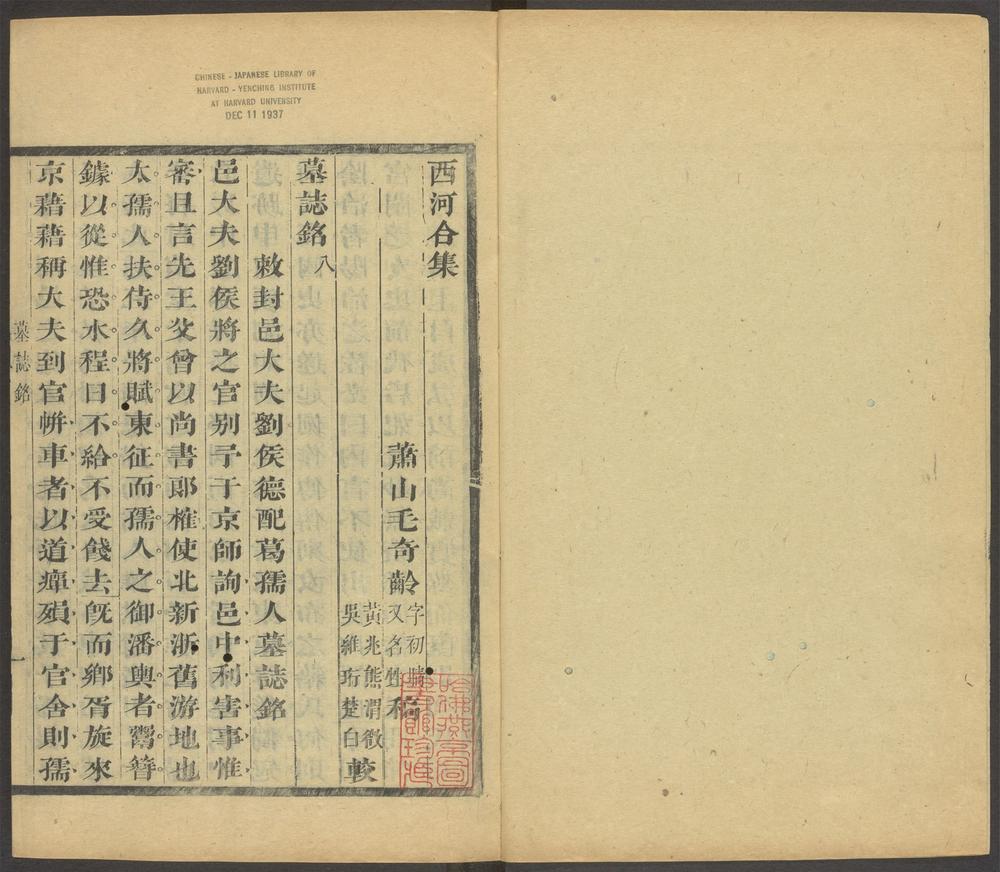 CHINESE - JAPANESE LIBRARY OF
HARVARD - YENCHING INSTITUTE
AT HARVARD UNIVERSITY
DEC 11 1937
西河合集
蕭山毛奇齡 字初晴 又名甡 稿
黃兆熊渭徵
吳維珩楚白 較
墓誌銘 八
敕封邑大夫劉侯德配葛孺人墓誌銘
邑大夫劉侯將之官别予于京師詢邑中利害事惟
審且言先王父曾以尚書郎榷使北新浙舊游地也
太孺人扶侍久將賦東征而孺人之御潘輿者鬻簪
鐻以從惟恐水程日不給不受餞去旣而鄉胥旋來
京藉藉稱大夫到官帡車者以道瘴殞于官舍則孺
墓誌銘
一
哈佛燕京圖書館珍藏